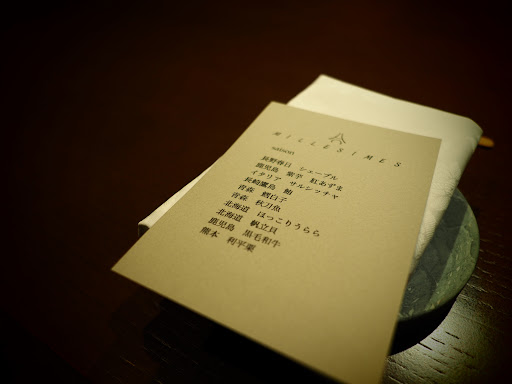 MILLESIMES
saison
長野春日　シェーブル
鹿児島　紫芋　紅あずま
イタリア　サルシッチャ
長崎鷹島　鮪
青森　鱈白子
青森　秋刀魚
北海道　ほっこりうらら
北海道　帆立貝
鹿児島　黒毛和牛
熊本　利平栗